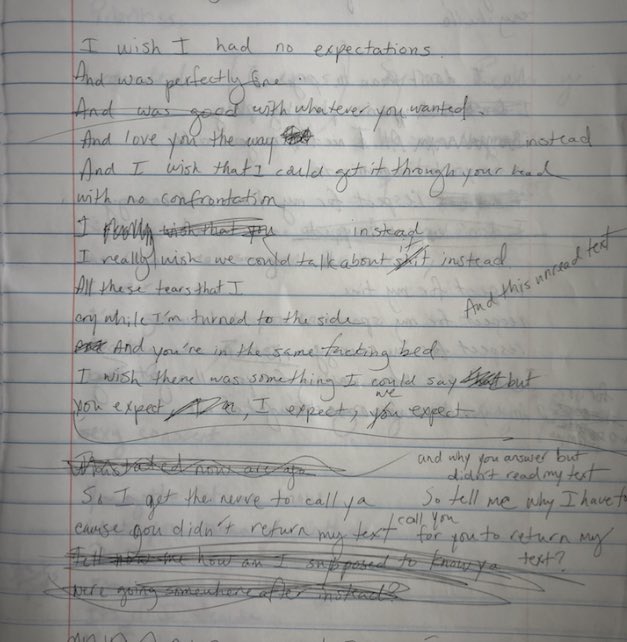 I wish I had no expectations.
And was perfectly fine.
And was good with whatever you wanted.
And love you the way instead
And I wish that I could get it through your head
with no confrontation
I really wish that you instead
I really wish we could talk about it instead
All these tears that I
And this unread text
cry while I'm turned to the side
And you're in the same fucking bed
I wish there was something I could say but
you expect, I expect, we expect.
and why you answer but
didn't read my text
So I get the nerve to call ya So tell me why I have to
cause you didn't return my text call you for you to return my
text?
Tell how am I supposed to know ya
were going somewhere after instead?